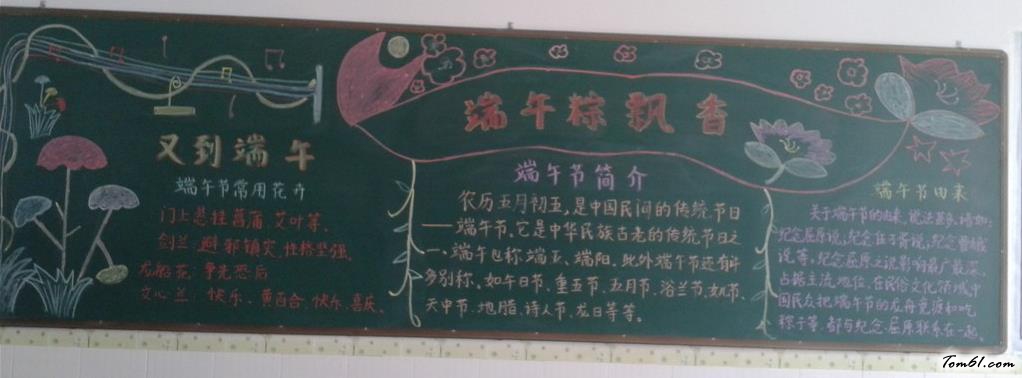 又到端午
端午节常用花卉
门上悬挂菖蒲、艾叶等。
剑兰：避邪镇灾，性格坚强。
龙船花：争先恐后
文心兰：快乐、黄百合：快乐、喜庆。
端午粽飘香
端午节简介
农历五月初五，是中国民间的传统节日
——端午节，它是中华民族古老的传统节日之
一。端午也称端五、端阳。此外端午节还有许
多别称，如午日节、重五节、五月节、浴兰节、女儿节、
天中节、地腊、诗人节、龙日等等。
端午节由来
关于端午节的由来，说法甚多，诸如：
纪念屈原说；纪念伍子胥说；纪念曹娥
说等。纪念屈原之说影响最广最深，
占据主流地位。在民俗文化领域，中
国民众把端午节的龙舟竞渡和吃
粽子等，都与纪念屈原联系在一起。
Tom61.com